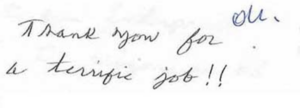 Thank you for
a terrific job!!